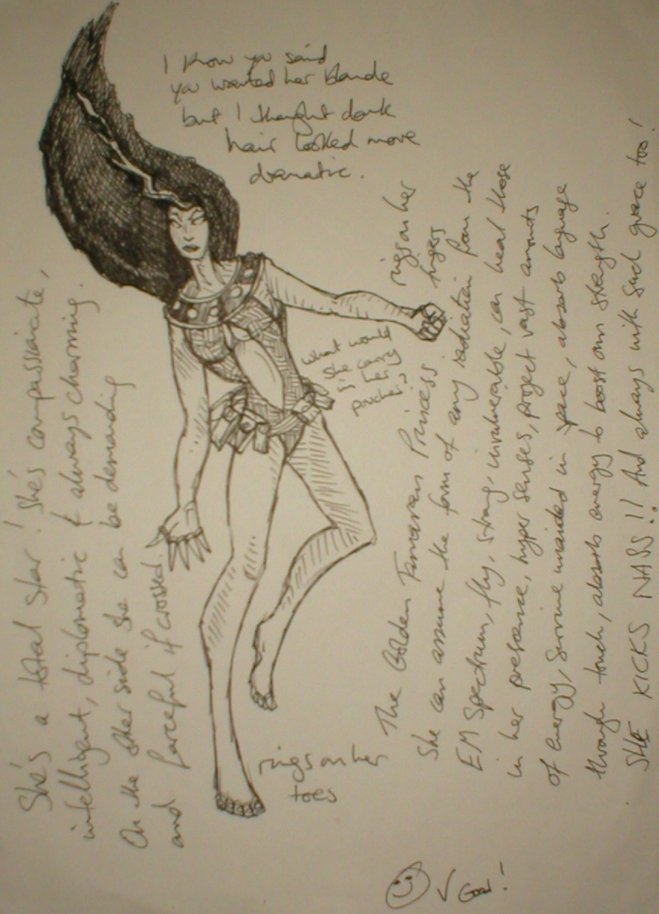 I know you said
you wanted her blonde
but I thought dark
hair looked more
dramatic.
She's a total star! She's compassionate,
intelligent, diplomatic & always charming.
On the other side she can be demanding
and forceful if crossed.
what would
she carry
in her
pouches?
rings on her
fingers
The Golden Princess
She can assume the form of any radiation from the
EM Spectrum, fly, strong, invulnerable, can heal those
in her presence, hyper senses, project vast amounts
of energy, survive unaided in space, absorb language
through touch, absorb energy to boost own strength.
SHE KICKS NASS!! And always with such grace too!
rings on her
toes
✓ Good!